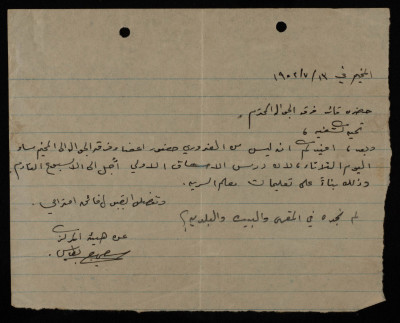 المخيم في ١٧/٧/١٩٥٢
حضرة قائد فرقة الجوالة المحترم،
تحية كشفية،
وبعد، أفيدكم انه ليس من الضروري حضور أعضاء فرقة الجوالة الى المخيم مساء
اليوم الثلاثاء، لان درس الاسعاف الاولي أجل الى الاسبوع القادم
وذلك بناءً على تعليمات معلم السرية.
وتفضلوا بقبول فائق احترامي.
لم نجده في المقهى والبيت والبلدية؟
عن هيئة المركز